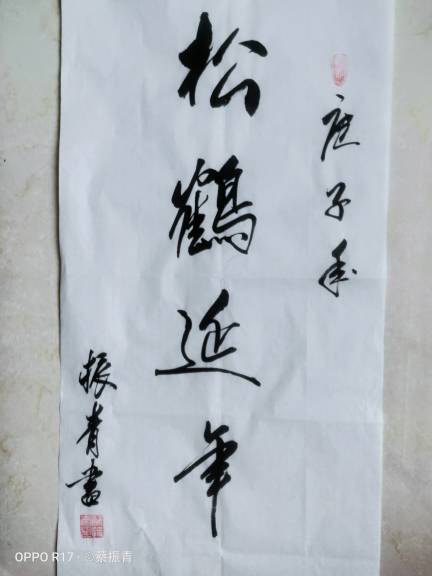 庚子年
松鶴延年
振青書
OPPO R17 · ©蔡振青